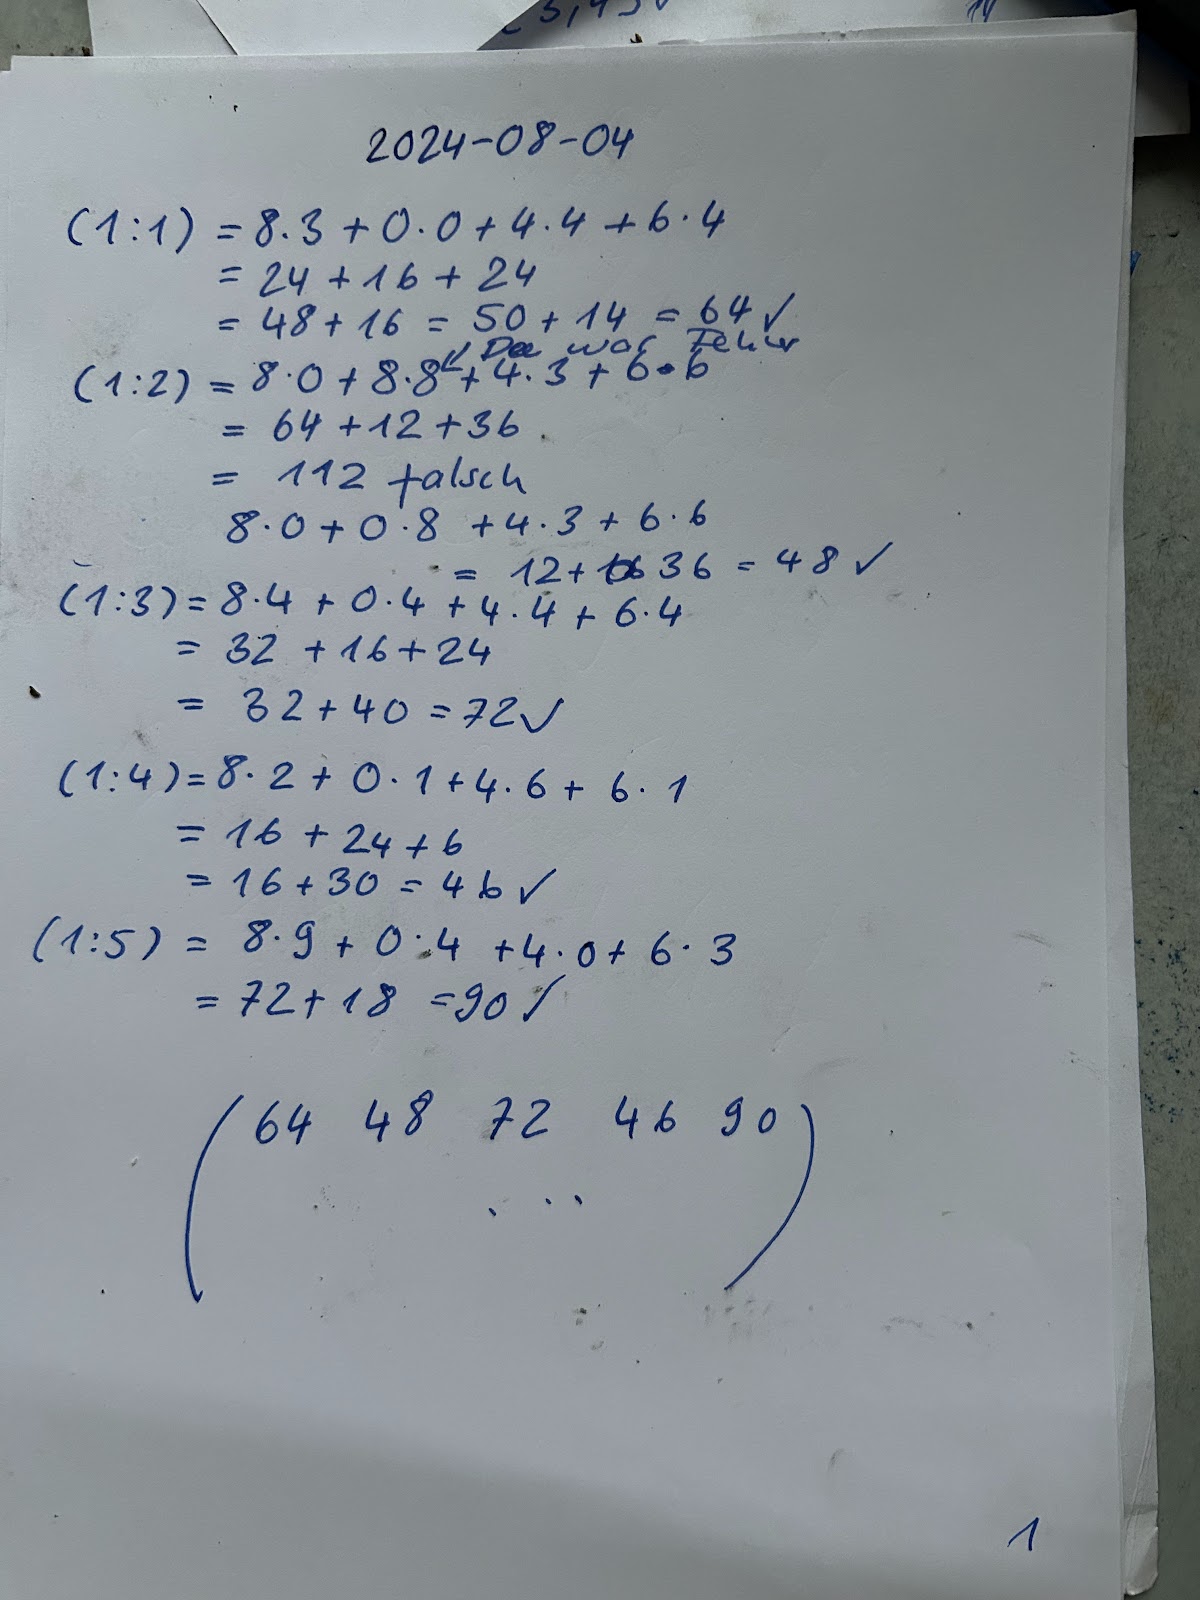 2024-08-04
(1:1) = 8·3 + 0·0 + 4·4 + 6·4
= 24 + 16 + 24
= 48 + 16 = 50 + 14 = 64 ✓
war Fehler
(1:2) = 8·0 + 8·8 + 4·3 + 6·6
= 64 + 12 + 36
= 112 falsch
8·0 + 0·8 + 4·3 + 6·6
= 12 + 36 = 48 ✓
(1:3) = 8·4 + 0·4 + 4·4 + 6·4
= 32 + 16 + 24
= 32 + 40 = 72 ✓
(1:4) = 8·2 + 0·1 + 4·6 + 6·1
= 16 + 24 + 6
= 16 + 30 = 46 ✓
(1:5) = 8·9 + 0·4 + 4·0 + 6·3
= 72 + 18 = 90 ✓
( 64 48 72 46 90 )
...
1